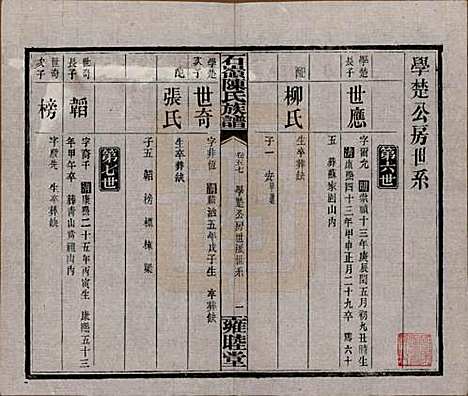 學楚公房世系
第六世
學楚長子
世應
字爾允 明崇禎十三年庚辰閏五月初九丑時生
清康熙四十三年甲申正月二十九卒 馬六十
五 葬蘇家園山內
配
柳氏
子一
石嶺陳氏族譜
卷七 學楚公房世系 一
雍睦堂
學楚次子
世奇
字非恆 清順治五年戊子生 卒葬缺
配
張氏
生卒葬缺
子五 韜 榜 標 棟 梁
第七世
世奇長子
韜
字裔千 清康熙二十五年丙寅生 康熙五十三
年甲午卒 葬青山黃祖山內
世奇次子
榜
字殿先 生卒葬缺